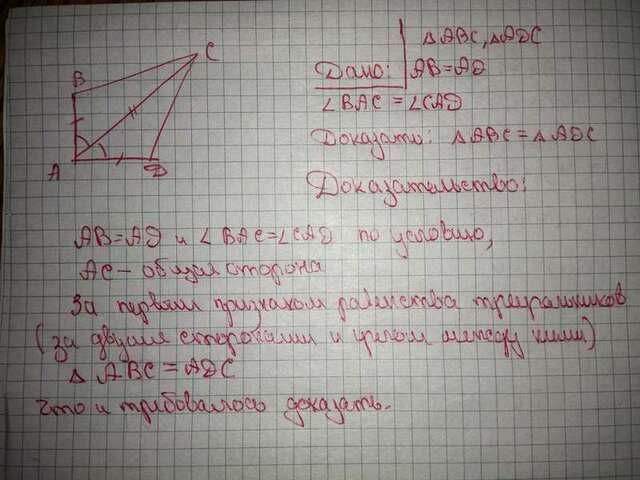 A
B
C
D
Дано: ΔABC, ΔADC
AB=AD
∠BAC=∠CAD
Доказати: ΔABC=ΔADC
Доказательство:
AB=AD и ∠BAC=∠CAD по условию,
AC - общая сторона
За первым признаком равенства треугольников
(за двумя сторонами и углом между ними)
Δ ABC = ADC
что и требовалось доказать.